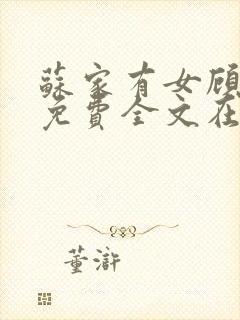 蘇家有女顾
免費全文在
董滸